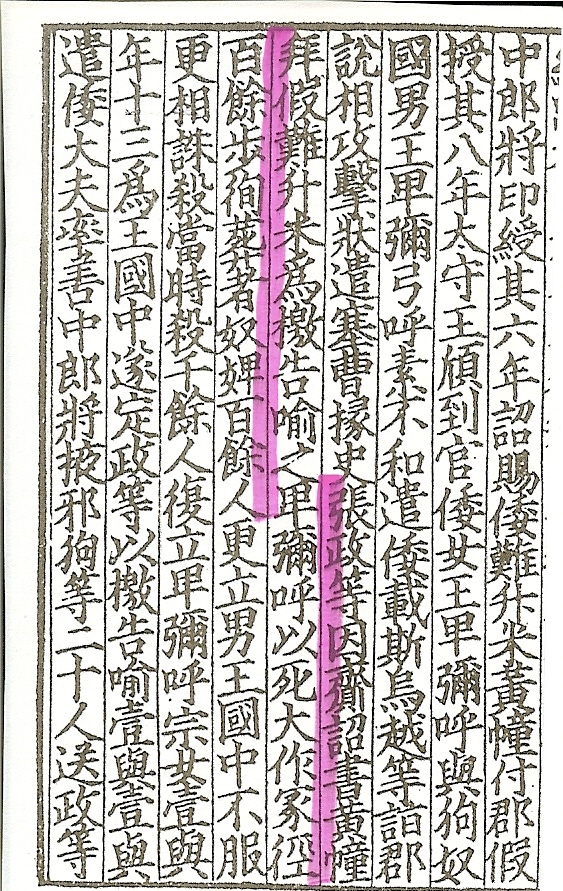 中郎將印綬其六年詔賜倭難升米黃幢付郡假
授其八年太守王頎到官倭女王卑彌呼與狗奴
國男王卑彌弓呼素不和遣倭載斯烏越等詣郡
說相攻擊狀遣塞曹掾史張政等因齎詔書黃幢
拜假難升米爲檄告喻之卑彌呼以死大作冢徑
百餘步徇葬者奴婢百餘人更立男王國中不服
更相誅殺當時殺千餘人復立卑彌呼宗女壹與
年十三爲王國中遂定政等以檄告喻壹與壹與
遣倭大夫率善中郎將掖邪狗等二十人送政等